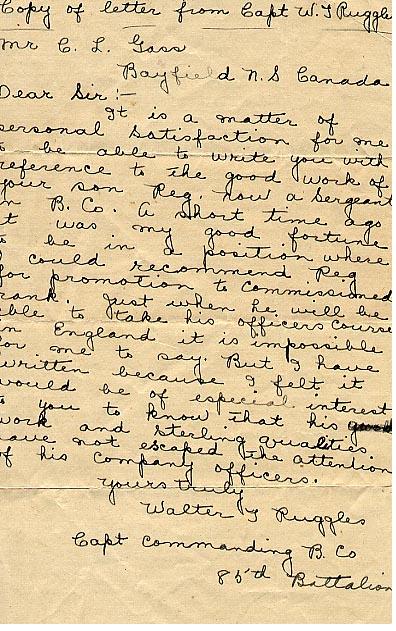 Copy of letter from Capt W. T Ruggles
Mr C. L. Gass
Bayfield N.S Canada
Dear Sir:-
It is a matter of
personal satisfaction for me
to be able to write you with
reference to the good work of
your son Reg. now a Sergeant
in B. Co. A short time ago
it was my good fortune
to be in a position where
I could recommend Reg
for promotion to commissioned
rank. Just when he will be
able to take his officers course
in England it is impossible
for me to say. But I have
written because I felt it
would be of especial interest
to you to know that his
work and sterling qualities.
have not escaped the attention
of his company officers.
Yours truly
Walter T Ruggles
Capt commanding B. Co
85th Battalion